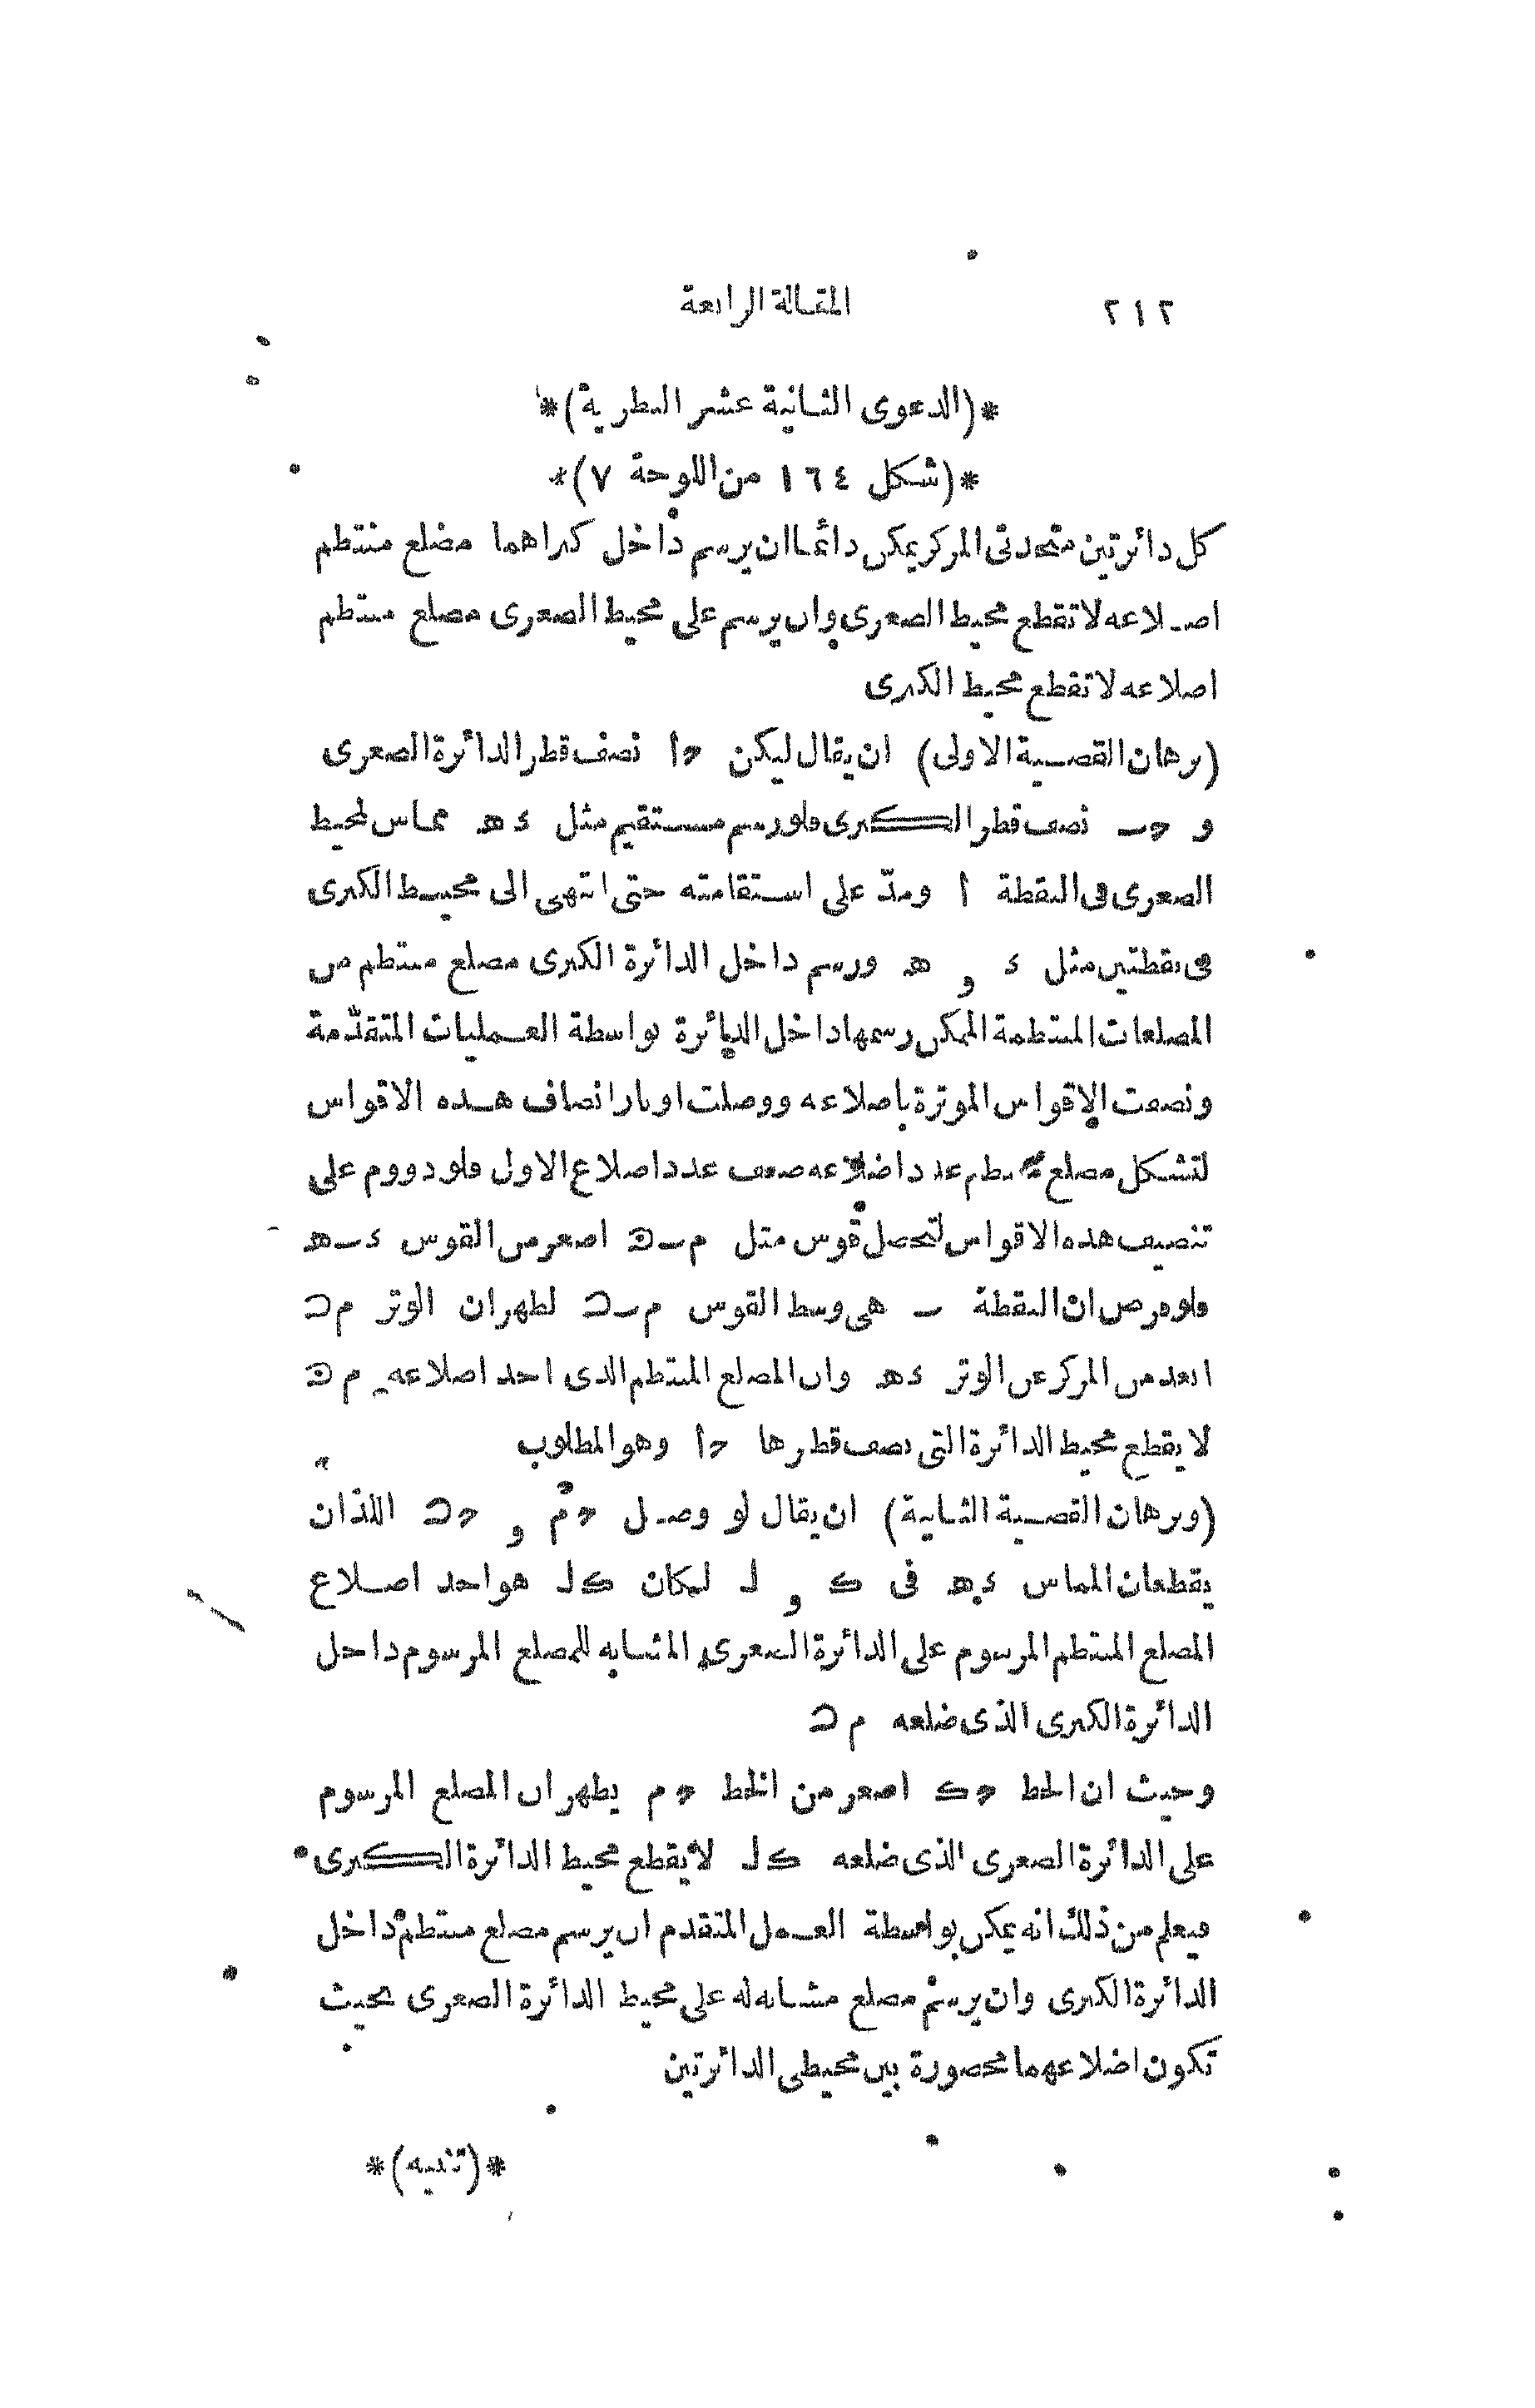 ٢١٢ المقالة الرابعة
*(الدعوى الثانية عشر النظرية)*
*(شكل ١٦٤ من اللوحة ٧)*
كل دائرتين متحدتى المركز يمكن دائما ان يرسم داخل كبراهما مضلع منتظم
اضلاعه لا تقطع محيط الصغرى وان يرسم على محيط الصغرى مضلع منتظم
اضلاعه لا تقطع محيط الكبرى
(برهان القضية الاولى) ان يقال ليكن حا نصف قطر الدائرة الصغرى
و حب نصف قطر الكبرى فلو رسم مستقيم مثل ء ه مماس لمحيط
الصغرى فى النقطة ا ومدّ على استقامته حتى انتهى الى محيط الكبرى
فى نقطتين مثل ء و ه ورسم داخل الدائرة الكبرى مضلع منتظم من
المضلعات المنتظمة الممكن رسمها داخل الدائرة بواسطة العمليات المتقدّمة
ونصفت الاقواس الموترة باضلاعه ووصلت اوتار انصاف هذه الاقواس
لتشكل مضلع منتظم عدد اضلاعه ضعف عدد اضلاع الاول فلو دووم على
تنصيف هذه الاقواس لتحصل قوس مثل م ب ن اصغر من القوس ء ب ه
فلو فرض ان النقطة ب هى وسط القوس م ب ن لظهر ان الوتر م ن
ابعد من المركز عن الوتر ء ه وان المضلع المنتظم الذى احد اضلاعه م ن
لا يقطع محيط الدائرة التى نصف قطرها حا وهو المطلوب
(وبرهان القضية الثانية) ان يقال لو وصل حم و حن اللذان
يقطعان المماس ء ه فى ك و ل لكان ك ل هو احد اضلاع
المضلع المنتظم المرسوم على الدائرة الصغرى المشابه للمضلع المرسوم داخل
الدائرة الكبرى الذى ضلعه م ن
وحيث ان الخط حك اصغر من الخط حم يظهر ان المضلع المرسوم
على الدائرة الصغرى الذى ضلعه ك ل لا يقطع محيط الدائرة الكبرى
فيعلم من ذلك انه يمكن بواسطة العمل المتقدم ان يرسم مضلع منتظم داخل
الدائرة الكبرى وان يرسم مضلع مشابه له على محيط الدائرة الصغرى بحيث
تكون اضلاعهما محصورة بين محيطى الدائرتين
*(تنبيه)*